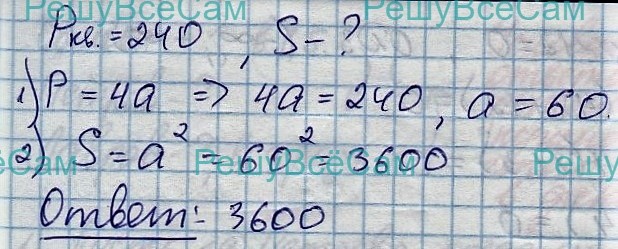 РешуВсёСам РешуВсёСам
Pкв. = 240 , S – ?
1) P = 4a => 4a = 240, a = 60.
2) S = a² = 60² = 3600
ёСам РешуВсёСам Решу
Ответ: 3600